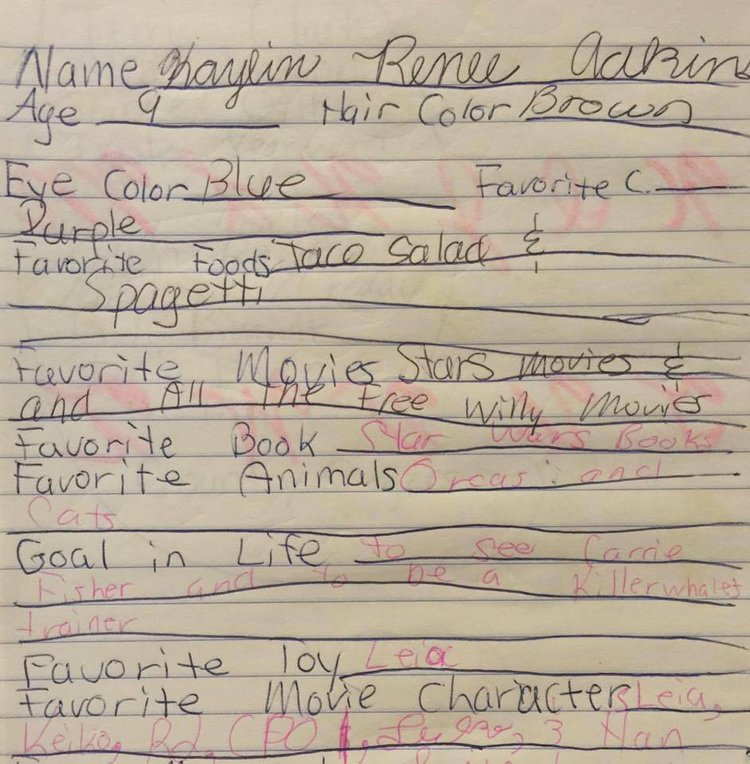 Name Kaylin Renee Aakins
Age 9 Hair Color Brown
Eye Color Blue Favorite C.
Purple
Favorite Foods Taco Salad &
Spagetti
Favorite Movies Stars movies &
and All The Free Willy Movies
Favorite Book Star Wars Books
Favorite Animals Orcas and
Cats
Goal in Life to see Carrie
Fisher and to be a Killerwhales
trainer
Favorite Toy Leia
Favorite Movie Characters Leia,
Keiko, Rd, CPO, 3 Han